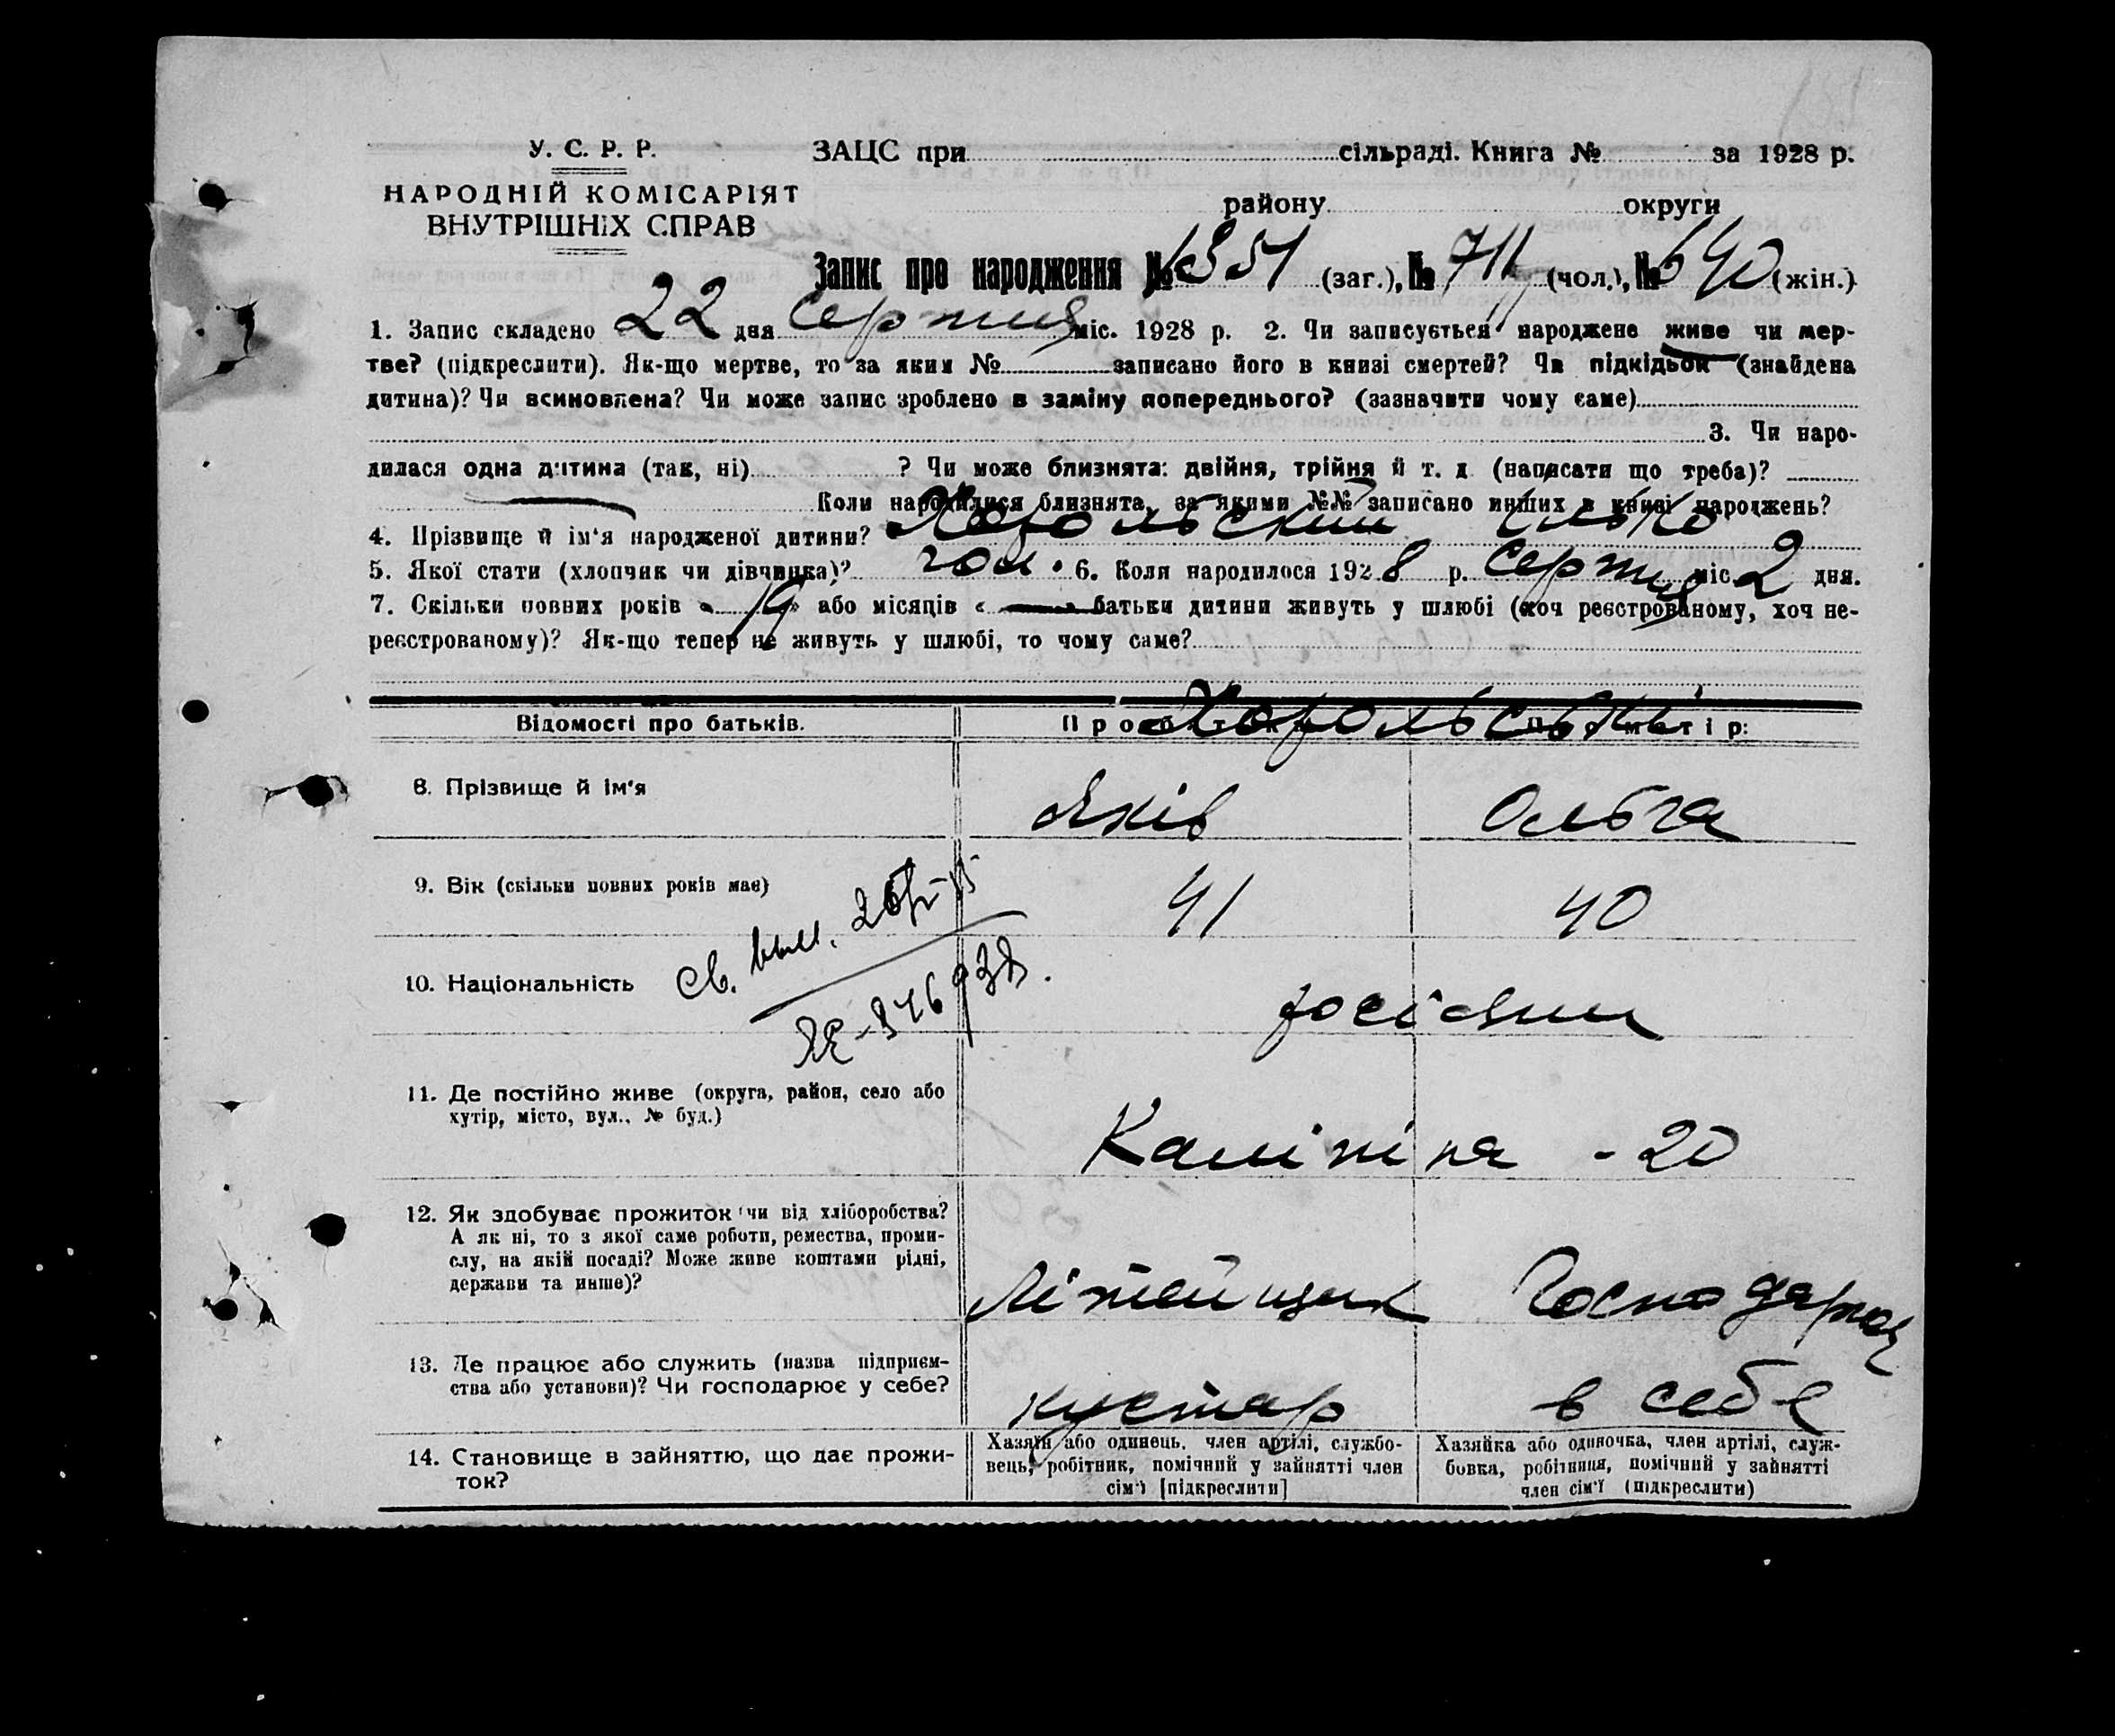 У. С. Р. Р.
НАРОДНІЙ КОМІСАРІЯТ
ВНУТРІШНІХ СПРАВ
ЗАЦС при сільраді. Книга № за 1928 р.
району округи
Запис про народження № 1351 (заг.), № 711 (чол.), № 640 (жін.)
1. Запис складено 22 дня Серпня міс. 1928 р. 2. Чи записується народжене живе чи мер-
тве? (підкреслити). Як-що мертве, то за яким № записано його в книзі смертей? Чи підкідьок (знайдена
дитина)? Чи всиновлена? Чи може запис зроблено в заміну попереднього? (зазначити чому саме)
3. Чи наро-
дилася одна дитина (так, ні) ? Чи може близнята: двійня, трійня й т. д. (написати що треба)?
Коли народилися близнята, за якими №№ записано инших в книзі народжень?
4. Прізвище й ім'я народженої дитини? Хорольский Ілько
5. Якої стати (хлопчик чи дівчинка)? чол. 6. Коли народилося 1928 р. Серпня міс. 2 дня.
7. Скільки повних років « 19 » або місяців « — » батьки дитини живуть у шлюбі (хоч реєстрованому, хоч не-
реєстрованому)? Як-що тепер не живуть у шлюбі, то чому саме?
Відомості про батьків. Про батька: Про матір:
Хорольські
8. Прізвище й ім'я Яків Ольга
9. Вік (скільки повних років має) 41 40
10. Національність росіяни
11. Де постійно живе (округа, район, село або
хутір, місто, вул., № буд.)
Калініна - 20
12. Як здобуває прожиток (чи від хліборобства?
А як ні, то з якої саме роботи, ремества, проми-
слу, на якій посаді? Може живе коштами рідні,
держави та инше)?
Літейщик Господарка
13. Де працює або служить (назва підприєм-
ства або установи)? Чи господарює у себе?
кустар в себе
14. Становище в зайняттю, що дає прожи-
ток?
Хазяїн або одинець, член артілі, службо-
вець, робітник, помічний у зайнятті член
сім'ї [підкреслити]
Хазяйка або одиночка, член артілі, служ-
бовка, робітниця, помічний у зайнятті
член сім'ї (підкреслити)